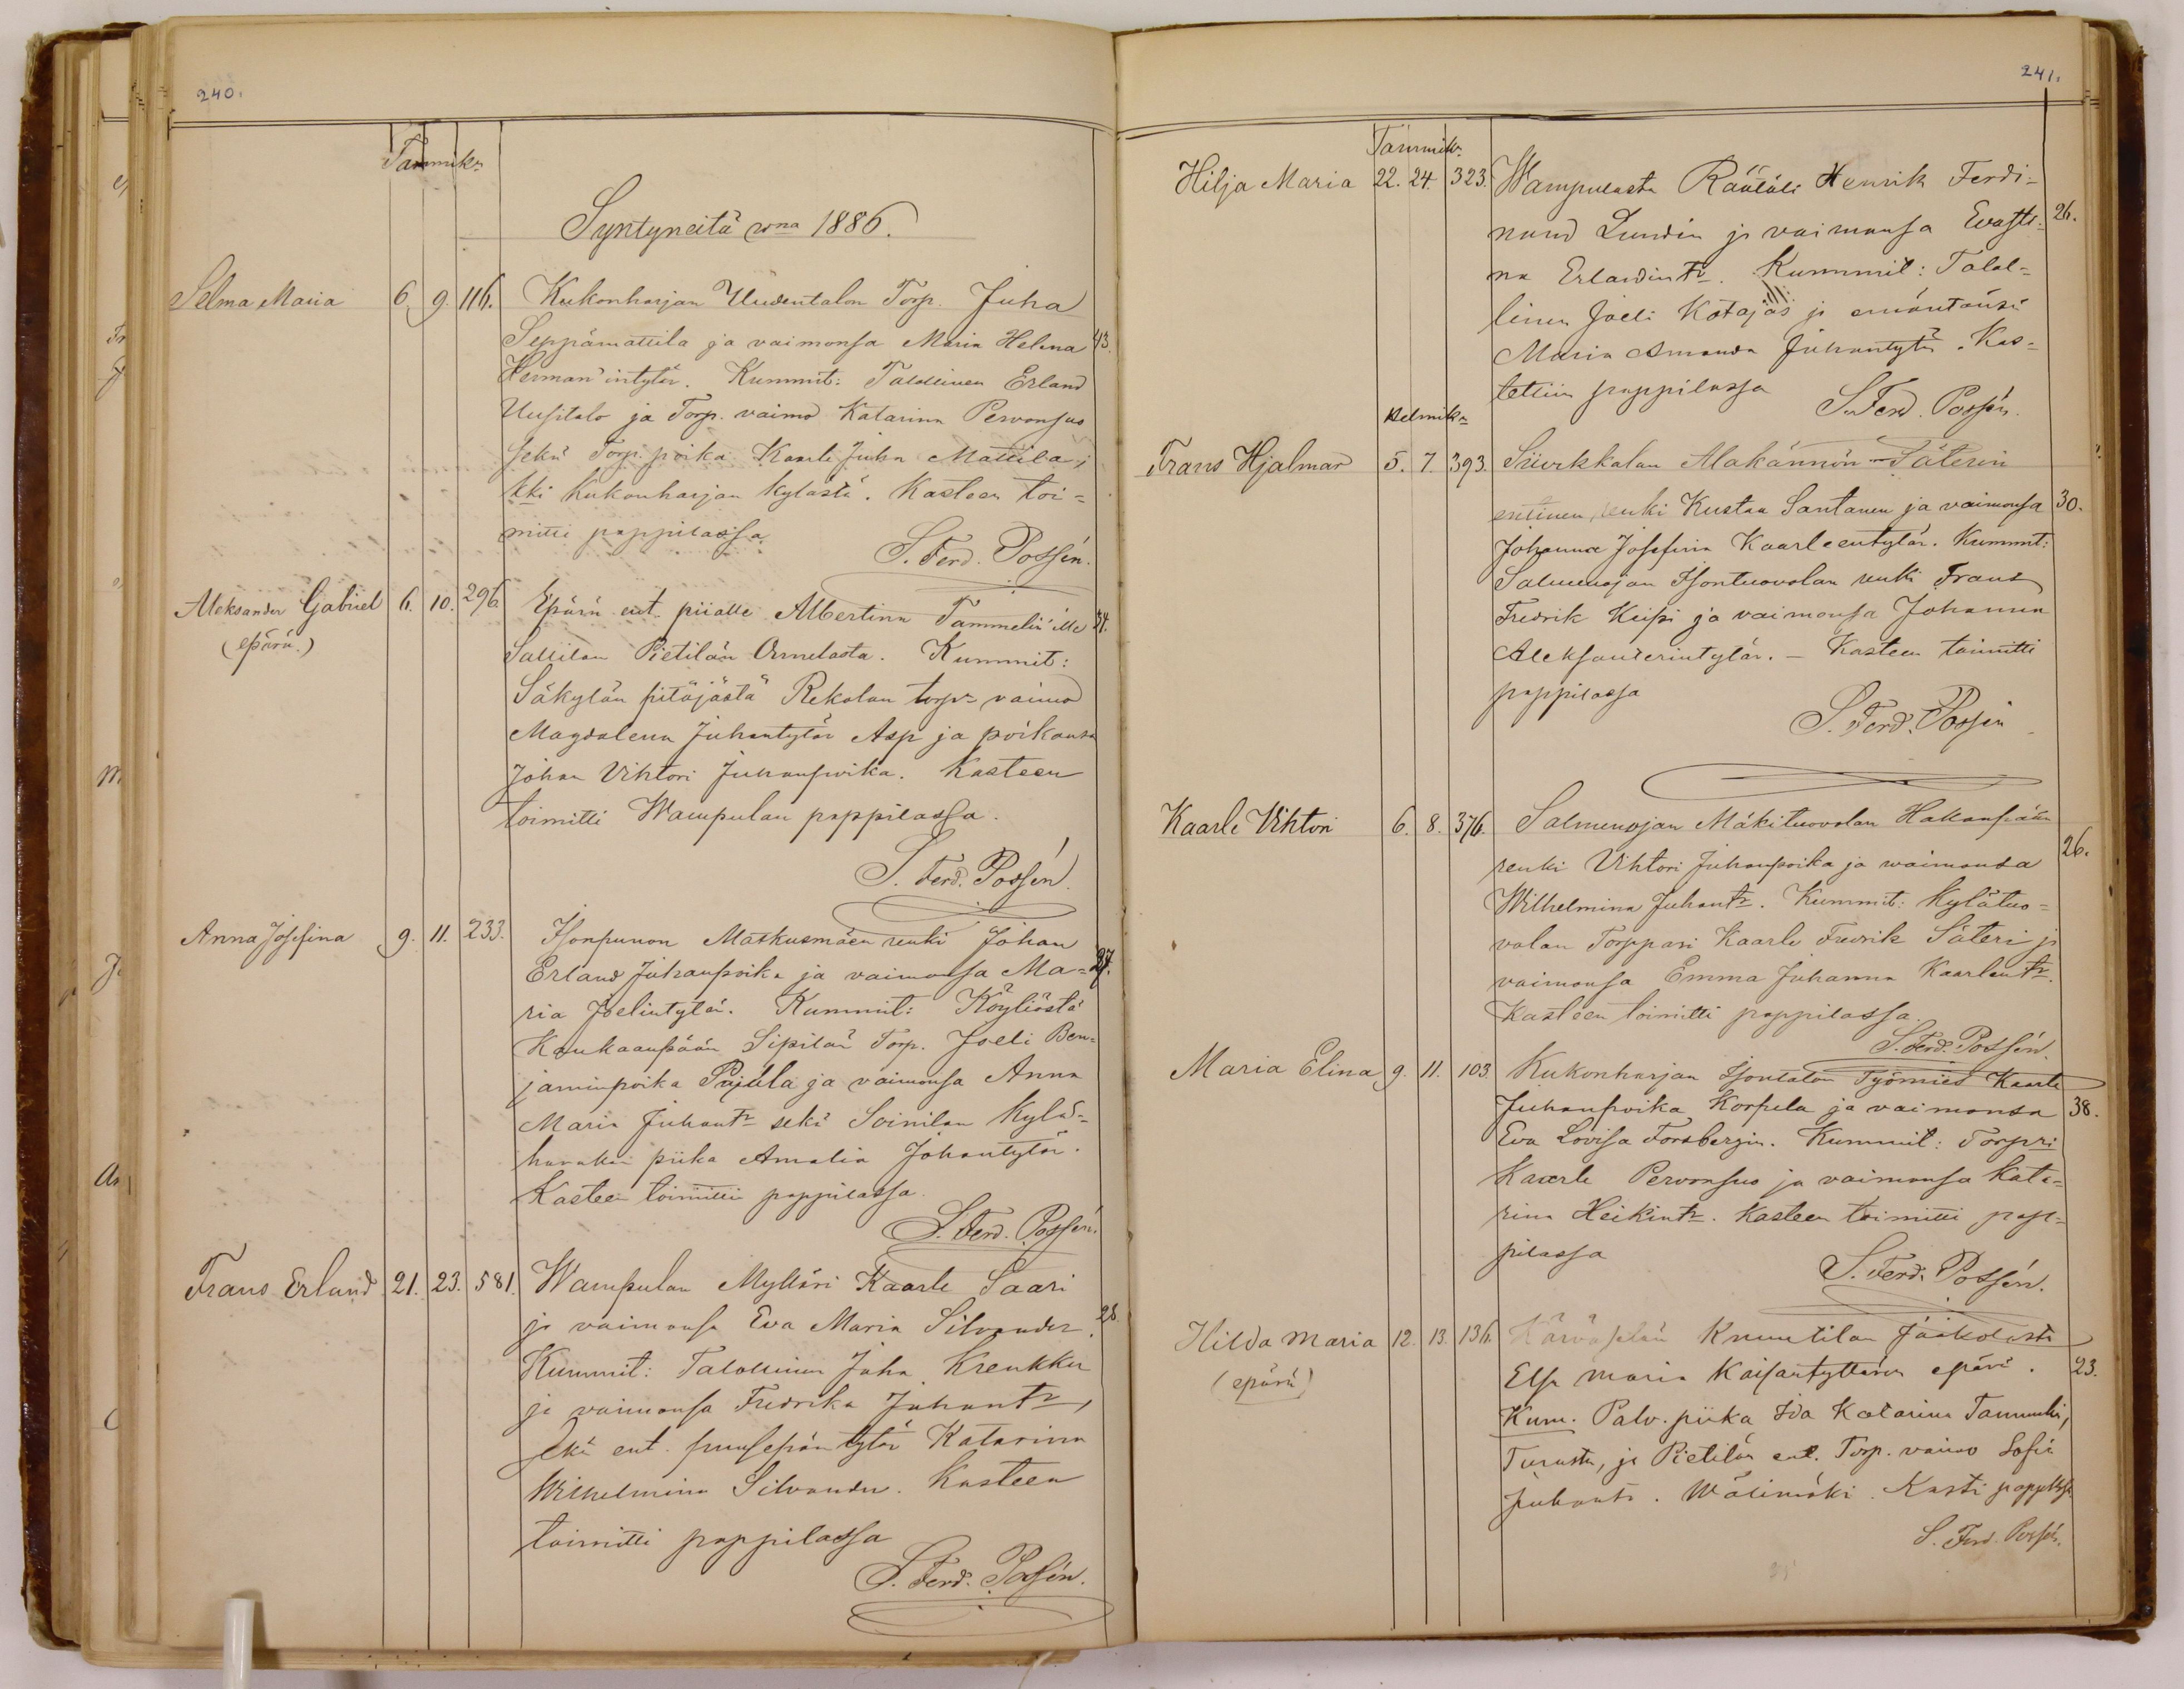 240.
Tammik.
Syntyneitä wna 1886.
Selma Maria 6. 9. 116. Kukonharjan Uudentalon Torp. Juha
Seppämattila ja vaimonsa Maria Helena 43.
Herman'intytär. Kummit: Talollinen Erland
Uusitalo ja Torp. vaimo Katarina Pervonsuo
sekä Torp. poika Kaarle Juha Mattila,
kki Kukonharjan kylästä. Kasteen toi-
mitti pappilassa.
S. Ferd. Possén.
Aleksander Gabriel 6. 10. 296. Epärä ent. piialle Albertina Tammelin'ille 34.
(epärä.) Sallilan Pietilän Ormelasta. Kummit:
Säkylän pitäjästä Rekolan torp. vaimo
Magdalena Juhantytär Asp ja poikansa
Johan Vihtori Juhanpoika. Kasteen
toimitti Wampulan pappilassa.
S. Ferd. Possén.
Anna Josefina 9. 11. 233. Isonpunon Maskusmäen renki Johan
Erland Juhanpoika ja vaimonsa Ma- 27.
ria Joelintytär. Kummit: Köyliöstä
Kankaanpään Sipilän Torp. Joeli Ben-
jaminpoika Pajula ja vaimonsa Anna
Maria Juhantr sekä Soinilan kylä-
piika Amalia Johantytär.
Kasteen toimitti pappilassa.
S. Ferd. Possén.
Frans Erland 21. 23. 581. Wampulan Mylläri Kaarle Saari
ja vaimonsa Eva Maria Silvander. 28.
Kummit: Talollinen Juha Krenkku
ja vaimonsa Fredrika Juhantr,
sekä ent. puusepän tytär Katarina
Wilhelmina Silvander. Kasteen
toimitti pappilassa
S. Ferd. Possén.
241.
Tammik.
Hilja Maria 22. 24. 323. Wampulasta Räätäli Henrik Ferdi-
nand Lundin ja vaimonsa Evasti- 26.
na Erlandintr. Kummit: Talol-
linen Joeli Kotajas ja emäntänsä
Maria Amanda Juhantytär. Kas-
tettiin pappilassa
S. Ferd. Possén.
Helmik.
Frans Hjalmar 5. 7. 393. Alakännön Säterin
entinen renki Kustaa Santanen ja vaimonsa 30.
Johanna Josefina Kaarleentytär. Kummit:
Salmenojan Isontuovolan renki Frans
Fredrik Keipi ja vaimonsa Johanna
Aleksanterintytär. – Kasteen toimitti
pappilassa
S. Ferd. Possén
Kaarle Vihtori 6. 8. 376. Salmenojan Mäkituovolan Hakanpään
renki Vihtori Juhanpoika ja waimonsa 26.
Wilhelmina Juhantr. Kummit: Kylätuo-
volan Torppari Kaarle Fredrik Säteri ja
vaimonsa Emma Juhanna Kaarlentr.
Kasteen toimitti pappilassa.
S. Ferd. Possén.
Maria Elina 9. 11. 103. Kukonharjan Isontalon Työmies Kaarle
Juhanpoika Korpela ja vaimonsa 38.
Eva Lovisa Forsbergin. Kummit: Torpri
Kaarle Pervonsuo ja vaimonsa Kata-
rina Heikintr. Kasteen toimitti pap-
pilassa
S. Ferd. Possén.
Hilda Maria 12. 13. 136. Kärväselän Knuutilan Jaakolasta
(epärä) Elsa Maria Kaisantyttären epärä. 23.
Kum. Palv. piika Ida Katarina Tammelin,
Turusta, ja Pietilän ent. Torp. vaimo Sofia
Juhantr. Wälimäki. Kasti pappilassa.
S. Ferd. Possén.